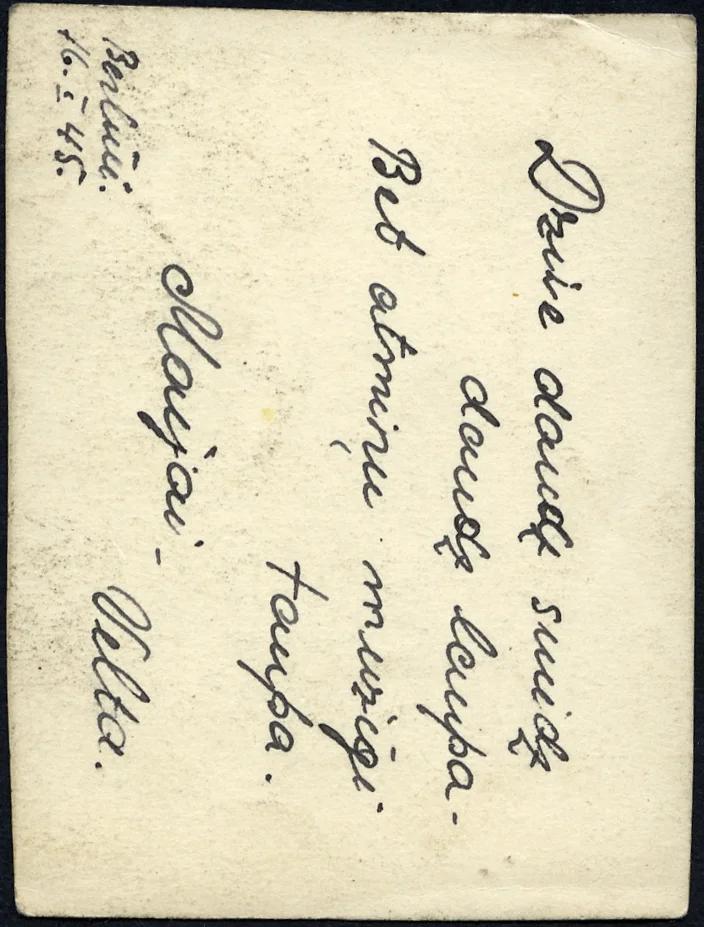 Dzive daudz sniedz
daudz laupa -
Bet atmiņu muzigi
taupa.
Maijai -
Velta.
Berlinē.
16. I 45.